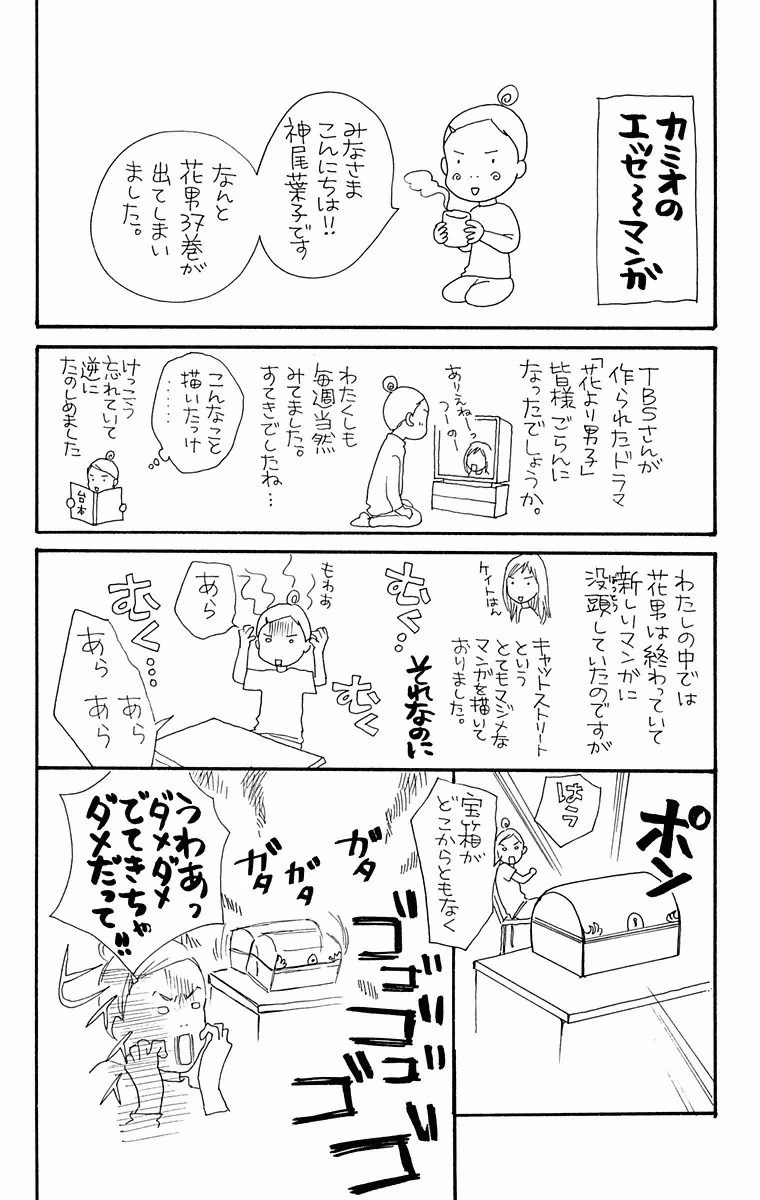 カミオの
エッセ〜マンガ
みなさま
こんにちは!!
神尾葉子です
なんと
花男37巻が
出てしまい
ました。
TBSさんが
作られたドラマ
「花より男子」
皆様ごらんに
なったでしょうか。
ありえねーっ
つーの
わたくしも
毎週当然
みてました。
すてきでしたね…
こんなこと
描いたっけ
……
けっこう
忘れていて
逆に
たのしめました
台本
わたしの中では
花男は終わっていて
新しいマンガに
没頭していたのですが
ぼっとう
ケイトはん
キャットストリート
という
とてもマジメな
マンガを描いて
おりました。
それなのに
むく…
もわぁ
あら
むく
むく…
あら
あら
あら
ポン
はう
宝箱が
どこからともなく
ガタ
ガタ
ガタ
ゴゴゴゴゴゴ
うわあっ
ダメダメ
でてきちゃ
ダメだって!!